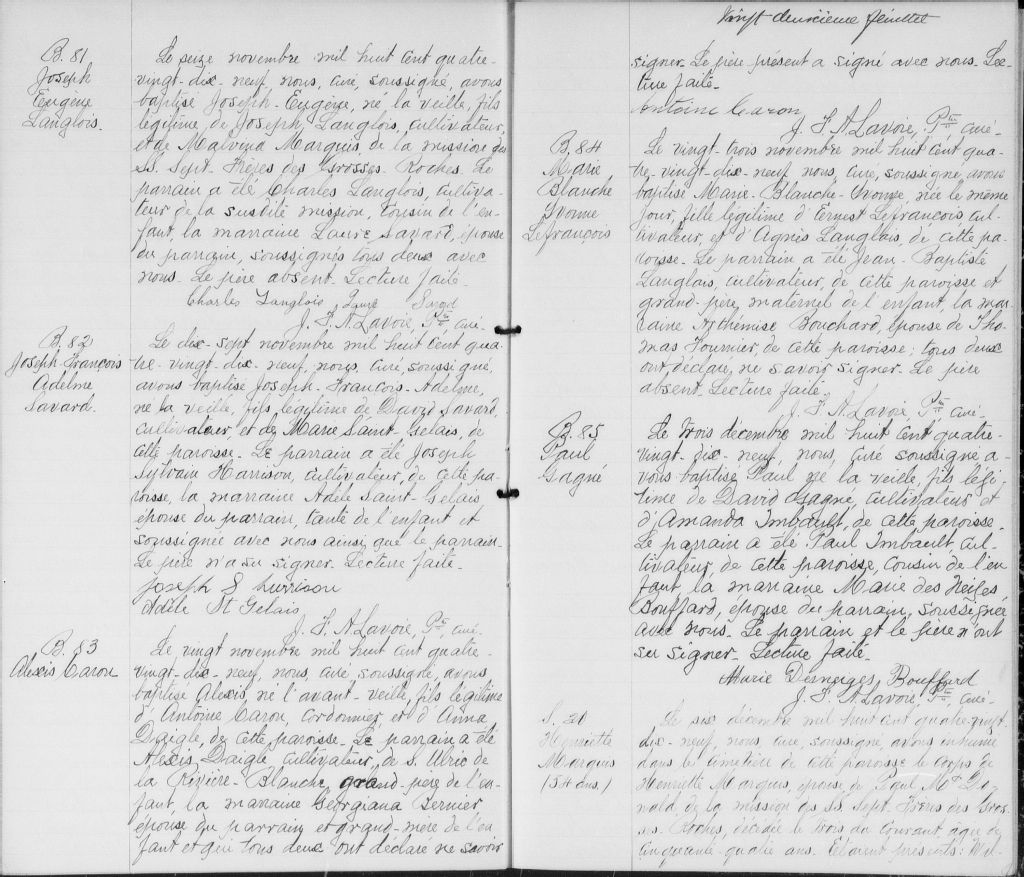 B. 81
Joseph
Eugène
Langlois.
Le seize novembre mil huit cent quatre-
vingt-dix-neuf nous, curé, soussigné, avons
baptisé Joseph-Eugène, né la veille, fils
légitime de Joseph Langlois, cultivateur,
et de Malvina Marquis, de la mission des
SS. Sept-Frères des Grosses-Roches. Le
parrain a été Charles Langlois, cultiva-
teur de la susdite mission, cousin de l'en-
fant, la marraine Laure Savard, épouse
du parrain, soussignés tous deux avec
nous. Le père absent. Lecture faite.
Charles Langlois Laure
J. F. A. Lavoie, Ptre curé-
B. 82
Joseph-François
Adelme
Savard.
Le dix-sept novembre mil huit cent qua-
tre-vingt-dix-neuf, nous, curé, soussigné,
avons baptisé Joseph-François-Adelme,
né la veille, fils légitime de David Savard,
cultivateur, et de Marie Saint-Gelais, de
cette paroisse. Le parrain a été Joseph
Sylvain Harrison, cultivateur, de cette pa-
roisse, la marraine Adèle Saint-Gelais
épouse du parrain, tante de l'enfant et
soussignée avec nous ainsi que le parrain-
Le père n'a su signer. Lecture faite-
Joseph S
Adèle St Gelais
J. F. A. Lavoie, Ptre curé-
B. 83
Alexis Caron
Le vingt novembre mil huit cent quatre-
vingt-dix-neuf, nous, curé, soussigné, avons
baptisé Alexis, né l'avant-veille, fils légitime
d'Antoine Caron, cordonnier et d'Anna
Daigle, de cette paroisse- Le parrain a été
Alexis Daigle, cultivateur, de S. Ulric de
la Rivière-Blanche, grand-père de l'en-
fant, la marraine Georgiana Bernier
épouse du parrain et grand-mère de l'en-
fant et qui tous deux ont déclaré ne savoir
Vingt deuxième feuillet
signer. Le père présent a signé avec nous. Lec-
ture faite-
Antoine Caron
J. F. A. Lavoie, Ptre curé-
B. 84
Marie
Blanche
Yvonne
Lefrançois
Le vingt-trois novembre mil huit cent qua-
tre-vingt-dix-neuf nous, curé, soussigné, avons
baptisé Marie-Blanche-Yvonne, née le même
jour, fille légitime d'Ernest Lefrançois cul-
tivateur, et d'Agnès Langlais, de cette pa-
roisse- Le parrain a été Jean-Baptiste
Langlais, cultivateur, de cette paroisse et
grand-père maternel de l'enfant, la mar-
raine Arthémise Bouchard, épouse de Tho-
mas Fournier, de cette paroisse; tous deux
ont déclaré ne savoir signer. Le père
absent. Lecture faite.
J. F. A. Lavoie, Ptre curé-
B. 85
Paul
Gagné
Le trois décembre mil huit cent quatre-
vingt-dix-neuf, nous, curé soussigné a-
vons baptisé Paul né la veille, fils légi-
time de David Gagné, cultivateur et
d'Amanda Imbault, de cette paroisse-
Le parrain a été Paul Imbault, cul-
tivateur, de cette paroisse, cousin de l'en
fant, la marraine Marie des Neiges
Bouffard, épouse du parrain, soussignée
avec nous- Le parrain et le père n'ont
su signer- Lecture faite-
Marie Desneiges Bouffard
J. F. A. Lavoie, Ptre, curé-
S. 20
Henriette
Marquis
(54 ans.)
Le six décembre mil huit cent quatre-vingt-
dix-neuf, nous, curé, soussigné, avons inhumé
dans le cimetière de cette paroisse le corps de
Henriette Marquis, épouse de Paul Mc Do-
nald de la mission des SS. Sept-Frères des Gros-
ses-Roches, décédée le trois du courant âgée de
cinquante-quatre ans. Étaient présents: Wil-